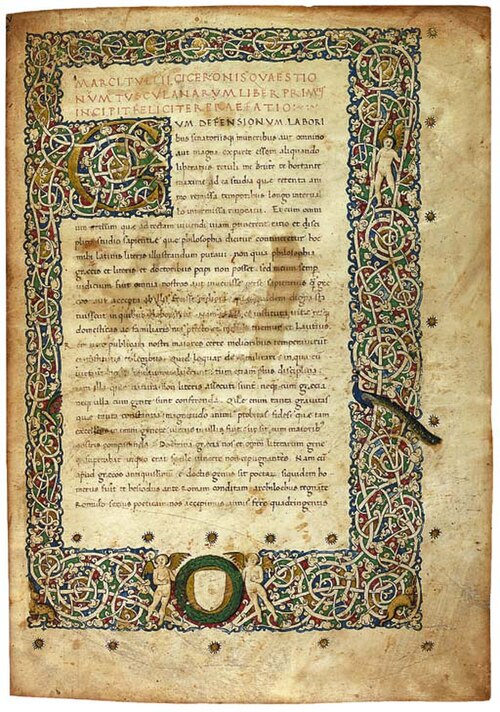 MARCI TVLLII CICERONIS QVAESTIO
NVM TVSCVLANARVM LIBER PRIMVS
INCIPIT FELICITER PRAEFATIO
CVM DEFENSIONVM LABORI
bus senatoriisqȝ muneribus aut omnino
aut magna ex parte essem aliquando
liberatus retuli me brute te hortante
maxime ad ea studia quę retenta ani
mo remissa temporibus longo interual
lo intermissa reuocaui. Et cum omni
um artium quę ad rectam uiuendi uiam pertinerent ratio et disci
plina studio sapientię quę philosophia dicitur contineretur hoc
mihi latinis literis illustrandum putaui. non quia philosophia
gręcis et literis et doctoribus percipi non posset. sed meum semp
iudicium fuit omnia nostros aut inuenisse per se sapientius quam gręcos
aut accepta ab illis fecisse meliora
tuissent in quibus
domesticas ac familiaris nos profecto et melius tuemur et Lautius.
rem uero publicam nostri maiores certe melioribus temperauerunt
institutis et legibus. Quid loquar de re militari in qua cum
uirtute nostri multum ualuerunt tum etiam plus disciplina.
iam illa quę natura non literis assecuti sunt. neqȝ cum gręcia
neqȝ ulla cum gente sunt conferenda. Quę enim tanta grauitas
quę tanta constantia magnitudo animi probitas fides quę tam
excellens in omni genere uirtus in ullis fuit ut sit cum maioribus
nostris comparanda. Doctrina gręcia nos et omni literarum genere
superabat in quo erat facile uincere non repugnantes. Nam cum
apud gręcos antiquissimum e doctis genus sit poetarum. siquidem ho
merus fuit et hesiodus ante romam conditam. archilochus regnante
Romulo. serius poeticam nos accepimus. annis fere quadringentis